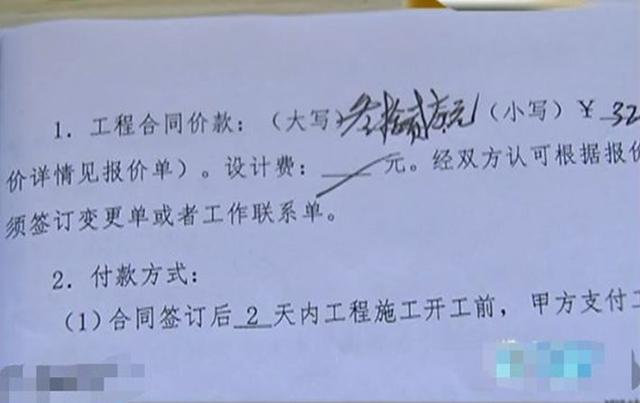 1. 工程合同价款：（大写）叁拾贰万元（小写）￥32
价详情见报价单）。设计费： 元。经双方认可根据报价
须签订变更单或者工作联系单。
2. 付款方式：
(1)合同签订后 2 天内工程施工开工前，甲方支付工